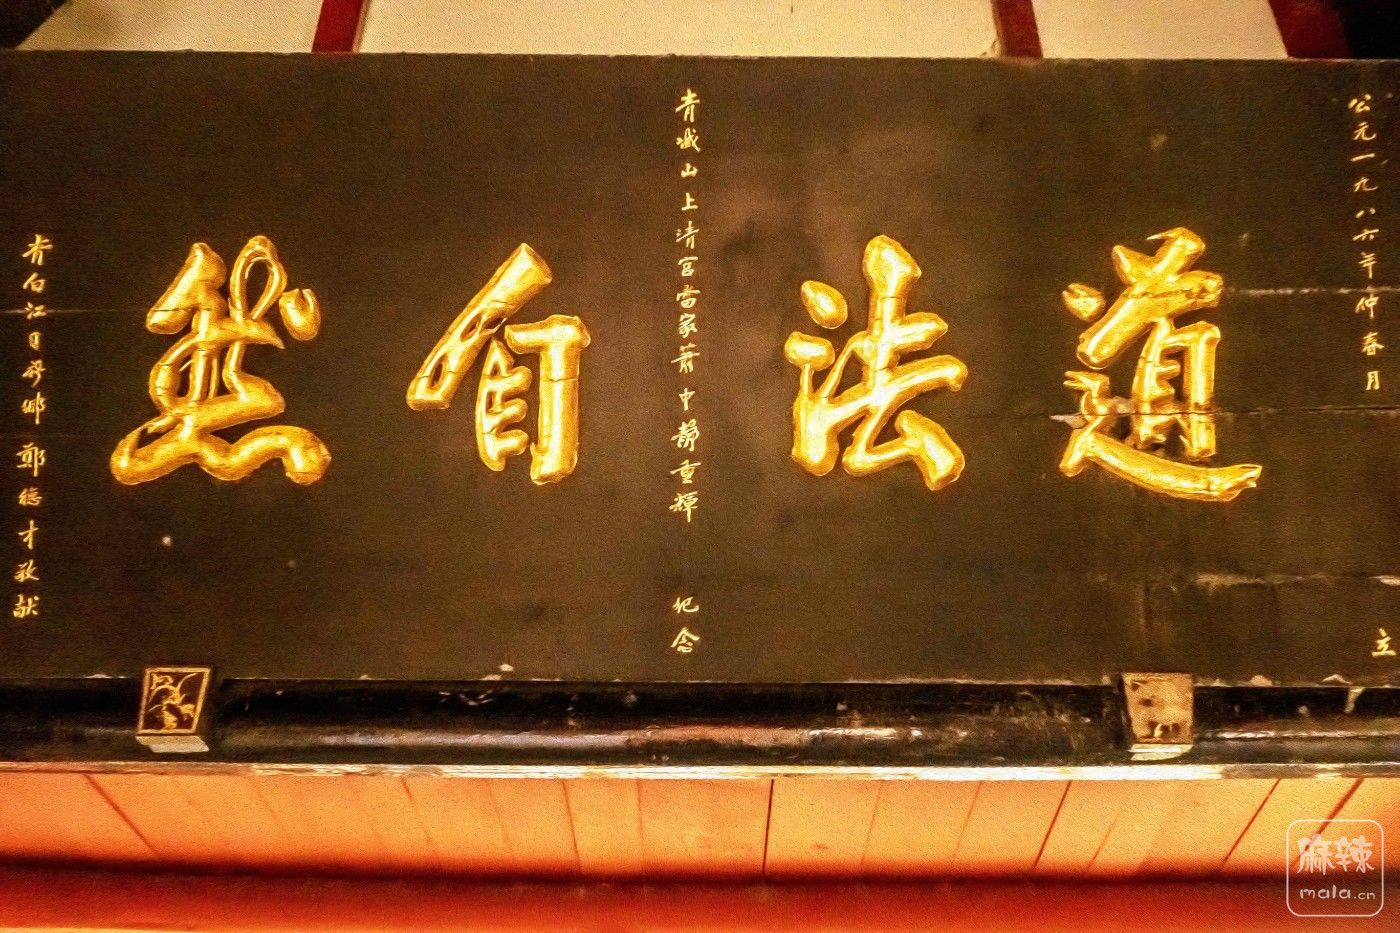 公元一九八六年仲春月 立
道法自然
青城山上清宮當家蕭中靜重輝 紀念
青白江日新鄉鄭德才敬献
麻辣
mala.cn